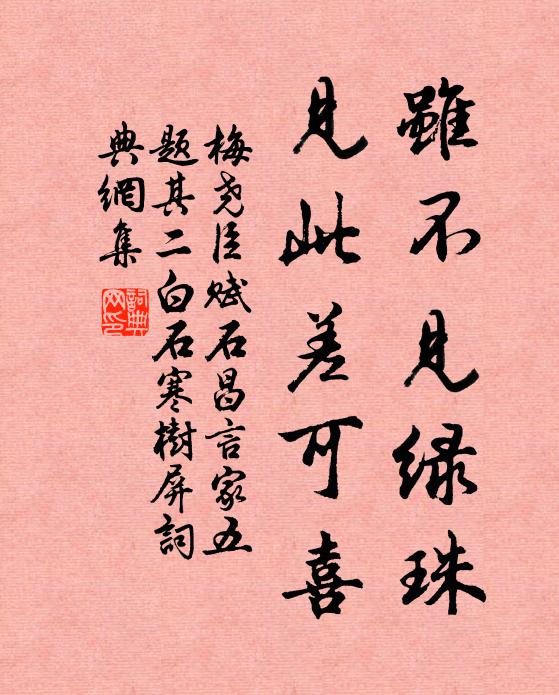 雖不見緑珠
見此差可喜
梅堯臣賦石昌言家五
題其二白石寒樹屏詞
典網集
詞典网印